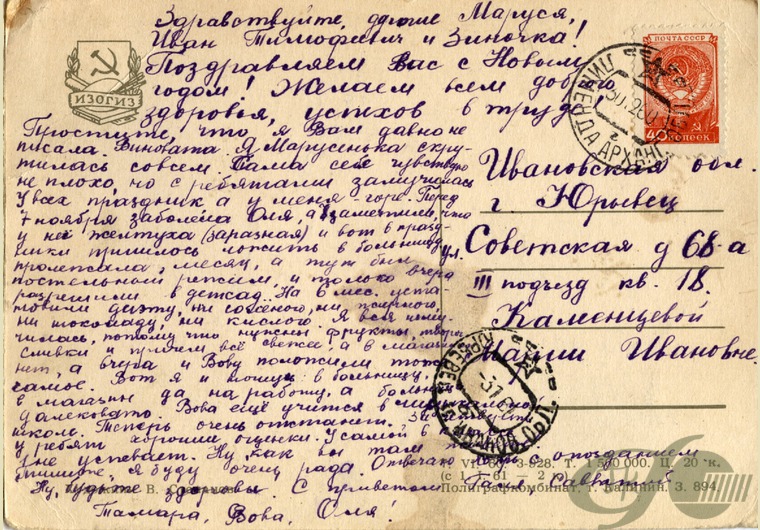 Здравствуйте, дорогие Маруся,
Иван Тимофеевич и Зиночка!
Поздравляем Вас с Новым
годом! Желаем всем доброго
здоровья, успехов в труде!
Простите, что я Вам давно не
писала. Виновата. Я Марусенька скру-
тилась совсем. Сама себе чувствую
не плохо, но с ребятами замучилась
У всех праздник а у меня - горе. Перед
7 ноября заболела Оля, а заметили, что
у ней желтуха (заразная) и вот в празд-
ники пришлось ложить в больницу
пролежала, месяц, а тут был
постельный режим, и только вчера
разрешили в детсад. На 6 мес. уста-
новили диэту, ни соленого, ни жирного,
ни шоколаду, ни кислого. Я вся изму-
чилась, потому что нужны фрукты, творог
сливки и причем всё свежее, а в магазине
нет, а вчера и Вову положили тоже
самое. Вот я и в больницу,
в магазин да на работу, а больница
далековато. Вова ещё учится в
школе. Теперь очень отстанет. За
у ребят хорошие оценки. У самой в
уже успевает. Ну как вы там
пишите, я буду очень рада. Отвечаю с опозданием
Ну, будьте здоровы. С приветом
Тамара, Вова, Оля!
ИЗОГИЗ
ПОЧТА СССР
40 КОПЕЕК
Ивановская обл.
г Юрьевец
ул. Советская д 68-а
III подъезд кв. 18.
Каменцевой
Марии Ивановне.
VII 60. 3-928. Т. 1 500 000. Ц. 20 к.
(с 1 61 2 к)
Полиграфкомбинат, г. Калинин. З. 894.